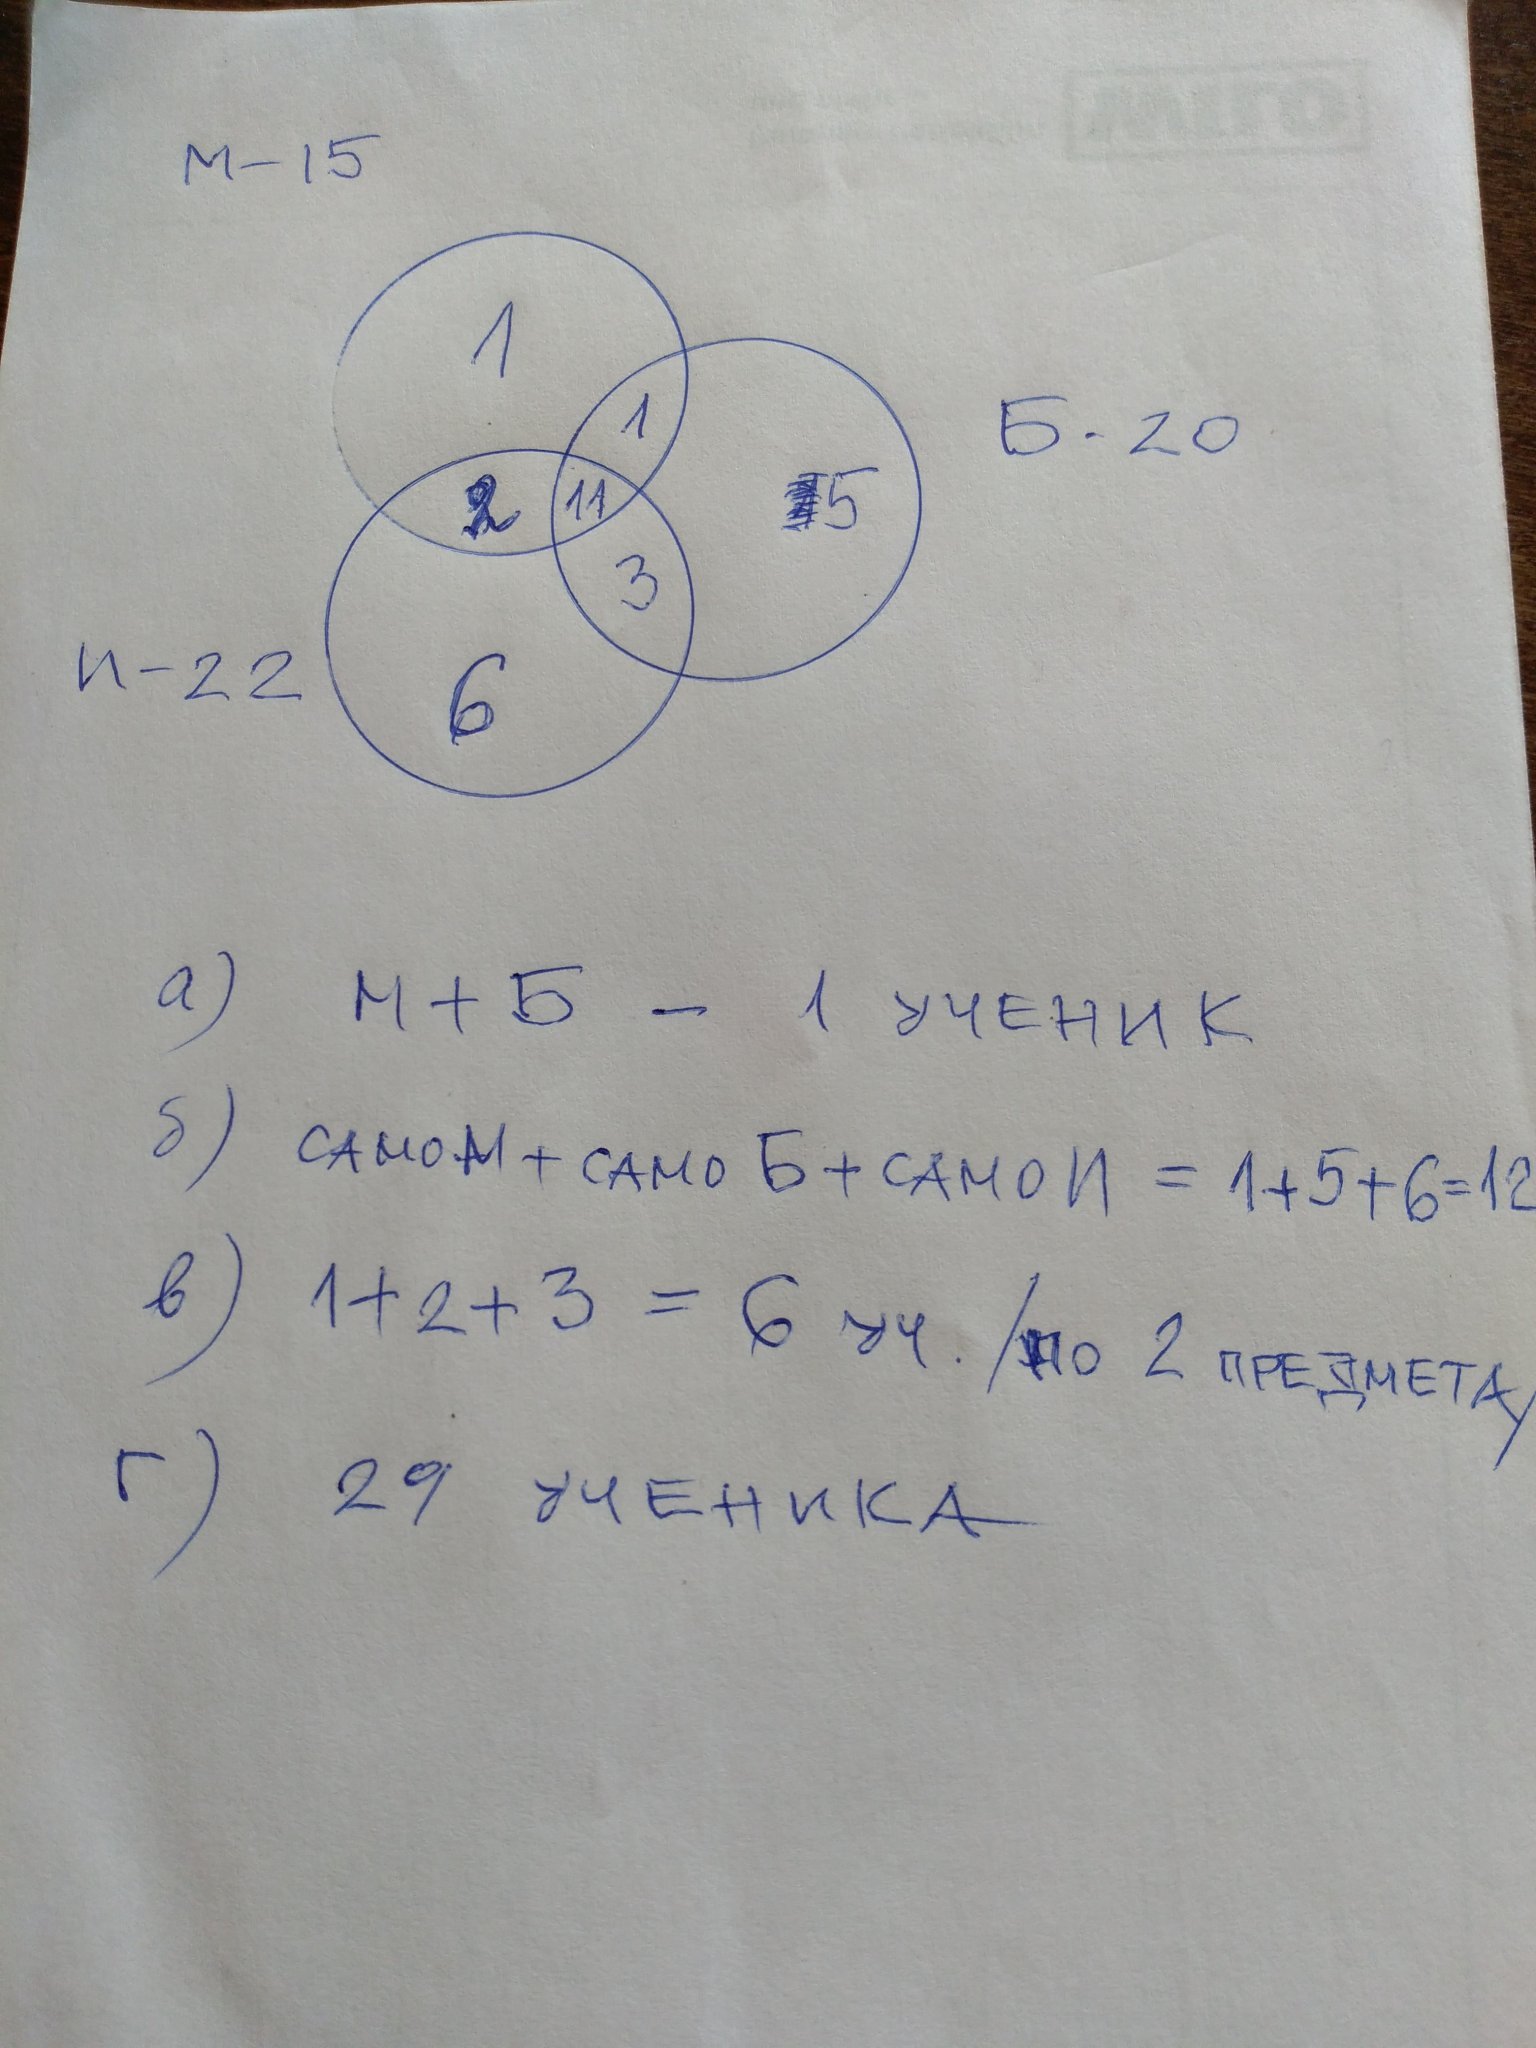 М-15
1
1
Б-20
2
11
5
3
И-22
6
а) М+Б - 1 УЧЕНИК
б) САМО М + САМО Б + САМО И = 1+5+6=12
в) 1+2+3 = 6 уч. /ПО 2 ПРЕДМЕТА/
г) 29 УЧЕНИКА